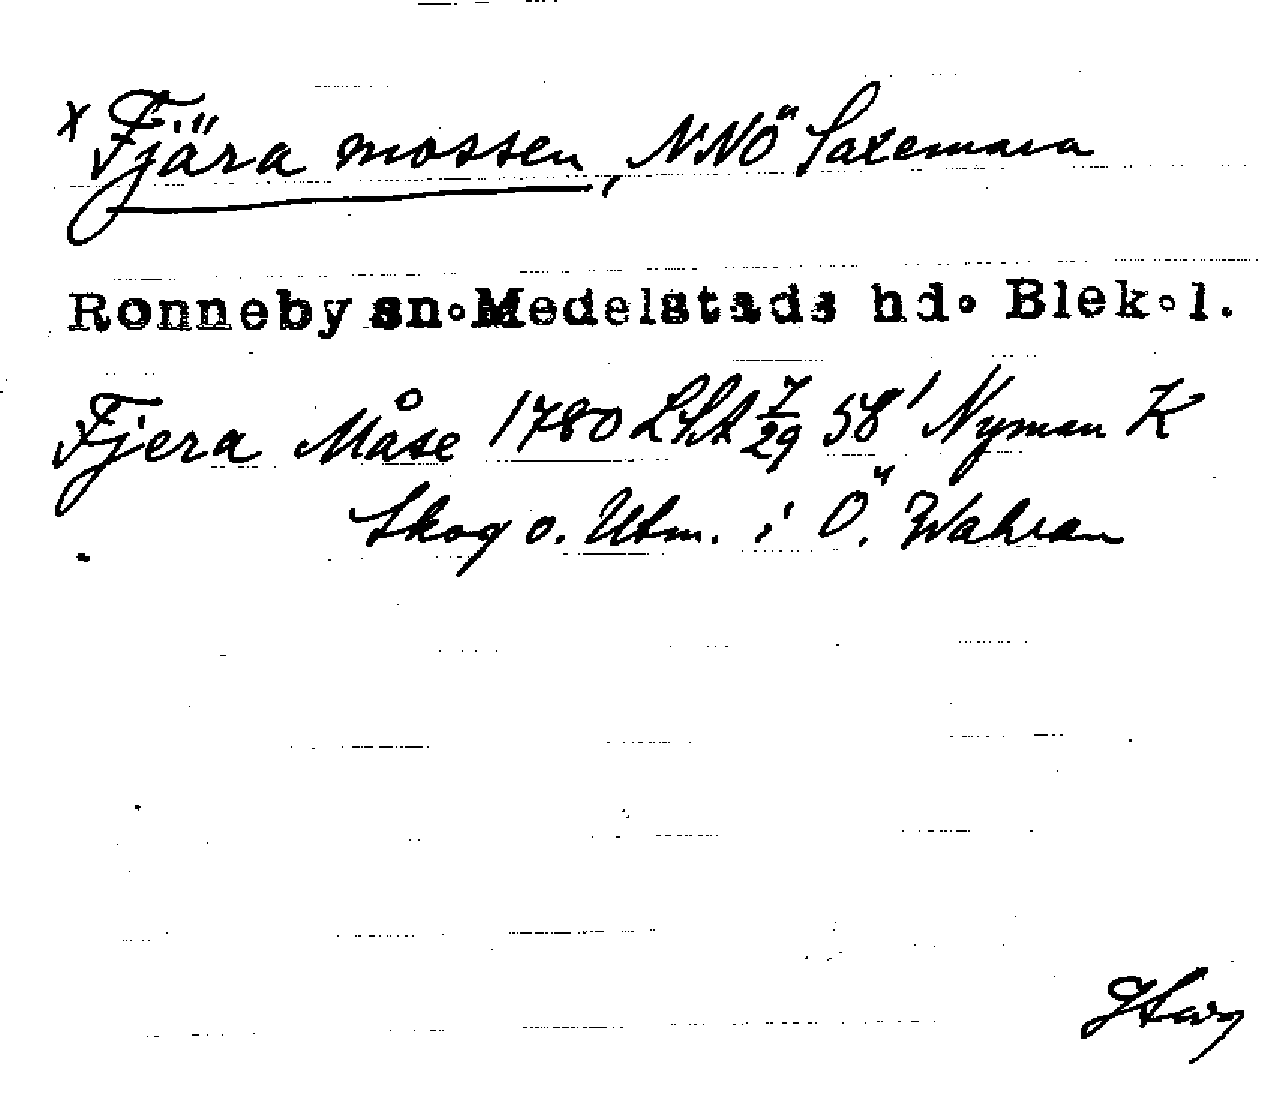 x Fjäramossen, NNÖ Saxemara
Ronneby sn. Medelstads hd. Blek. l.
Fjera Måse 1780 LSA 7/29 58' Nyman K
Skog o. Utm. i Ö. Wahran